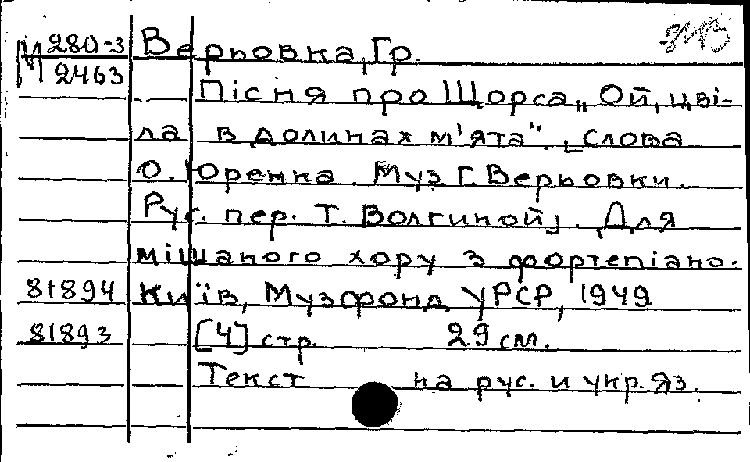 М 280-3
2463
Верьовка, Гр.
Пісня про Щорса „Ой, цві-
ла в долинах м'ята". [Слова
О. Юренка. Муз Г. Верьовки.
Рус. пер. Т. Волгиной]. Для
мішаного хору з фортепіано.
81894 Київ, Музфонд УРСР, 1949
81893 [4] стр. 29 см.
Текст на рус. и укр. яз.